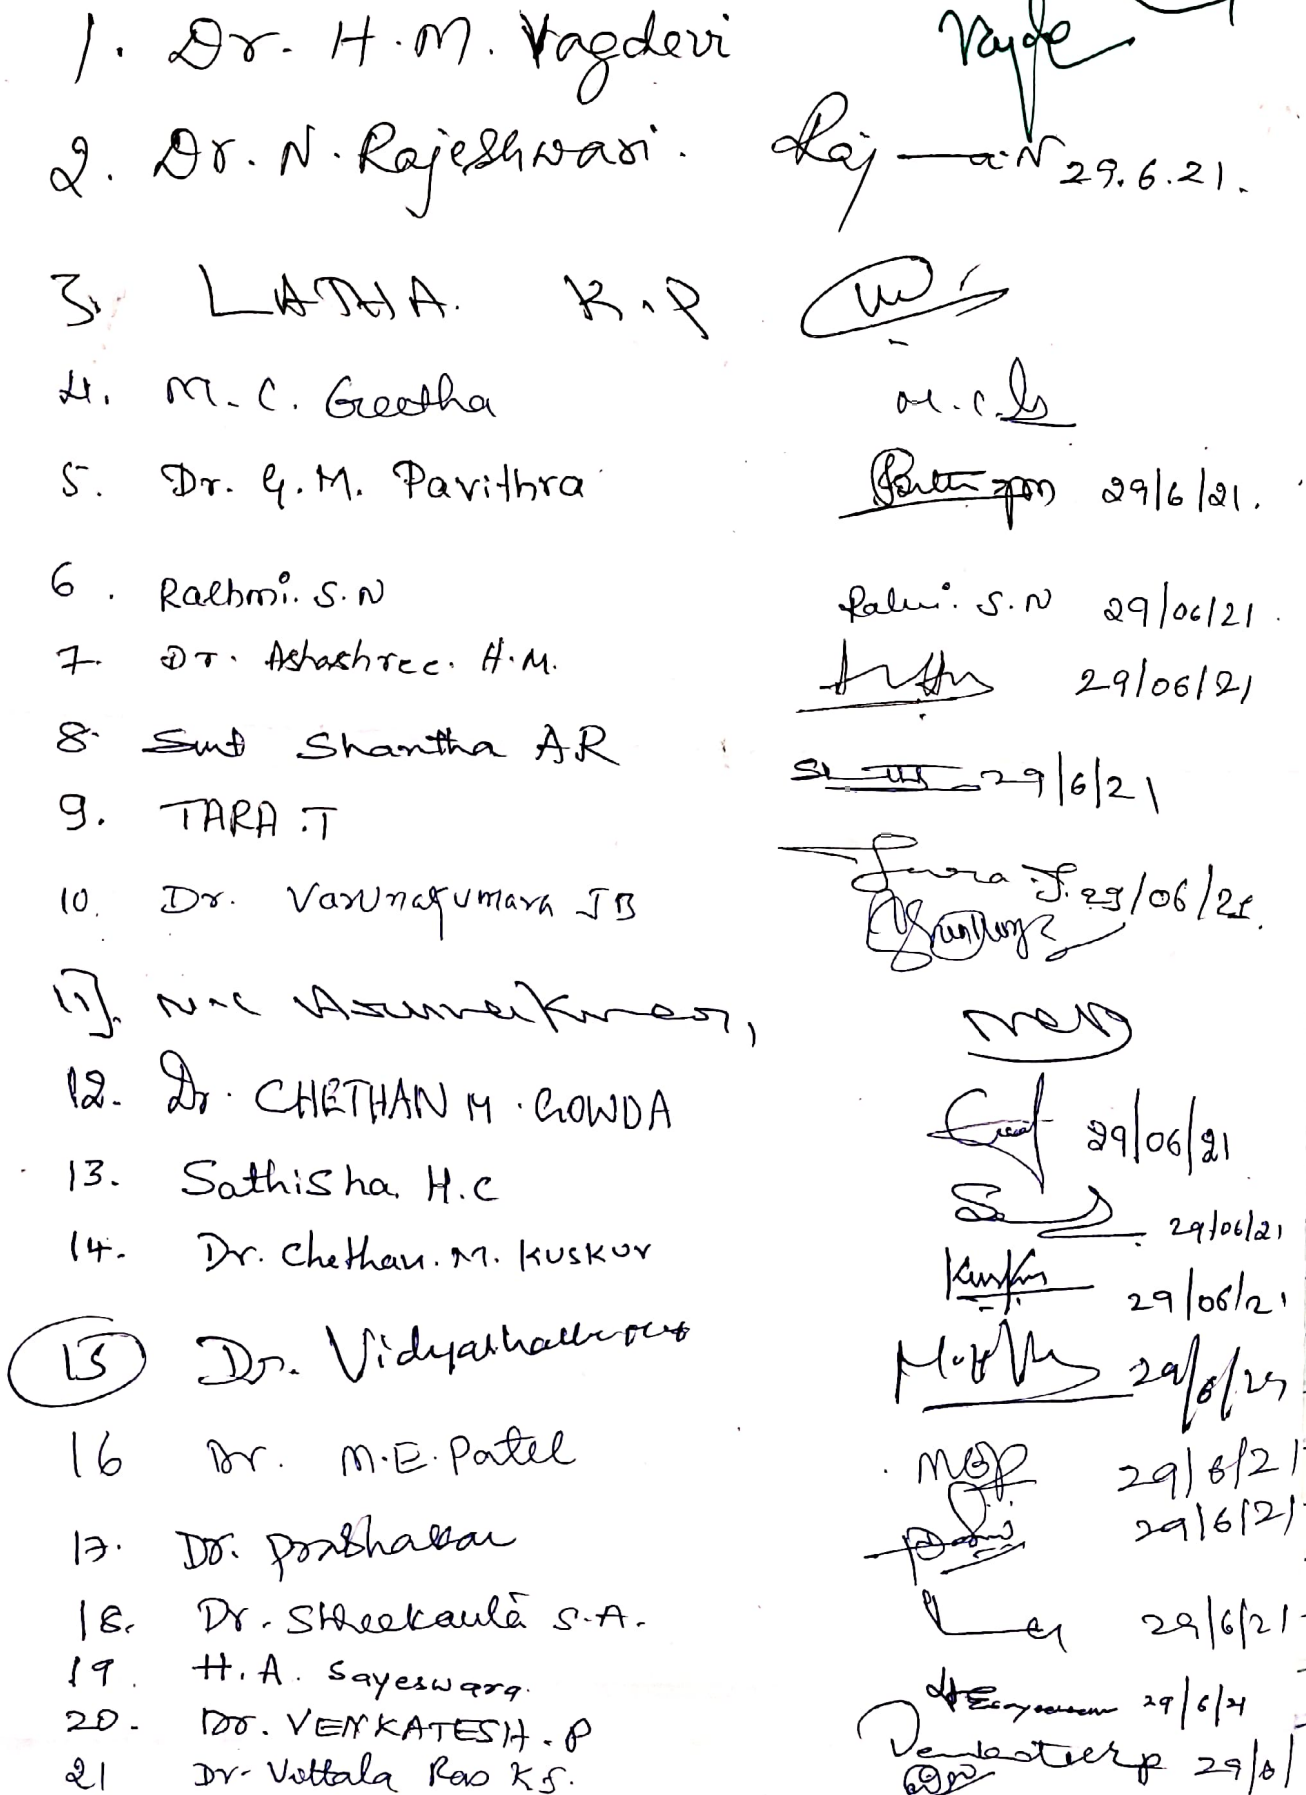 1. Dr. H.M. Vagdevi
2. Dr. N. Rajeshwari. Raj a.N 29.6.21.
3. LATHA. K.P
4. M.C. Geetha M.C.G
5. Dr. G.M. Pavithra 29/6/21.
6. Rashmi. S.N Rashmi. S.N 29/06/21.
7. Dr. Ashashree. H.M. 29/06/21
8. Smt Shantha AR 29/6/21
9. TARA.T Tara.T. 29/06/21.
10. Dr. Varunakumara JB
11]. N.C Arunakumar,
12. Dr. CHETHAN M. GOWDA 29/06/21
13. Sathisha. H.C 29/06/21
14. Dr. Chethan. M. KUSKUR 29/06/21
15 Dr. 29/6/21
16 Dr. M.E. Patel MEP 29/6/21
17. Dr. Prabhakar 29/6/21
18. Dr. Shreekanta S.A. 29/6/21
19. H.A. Sayeswara. 29/6/21
20. Dr. VENKATESH.P Venkatesh P 29/6/
21 Dr. Vittala Rao K S.